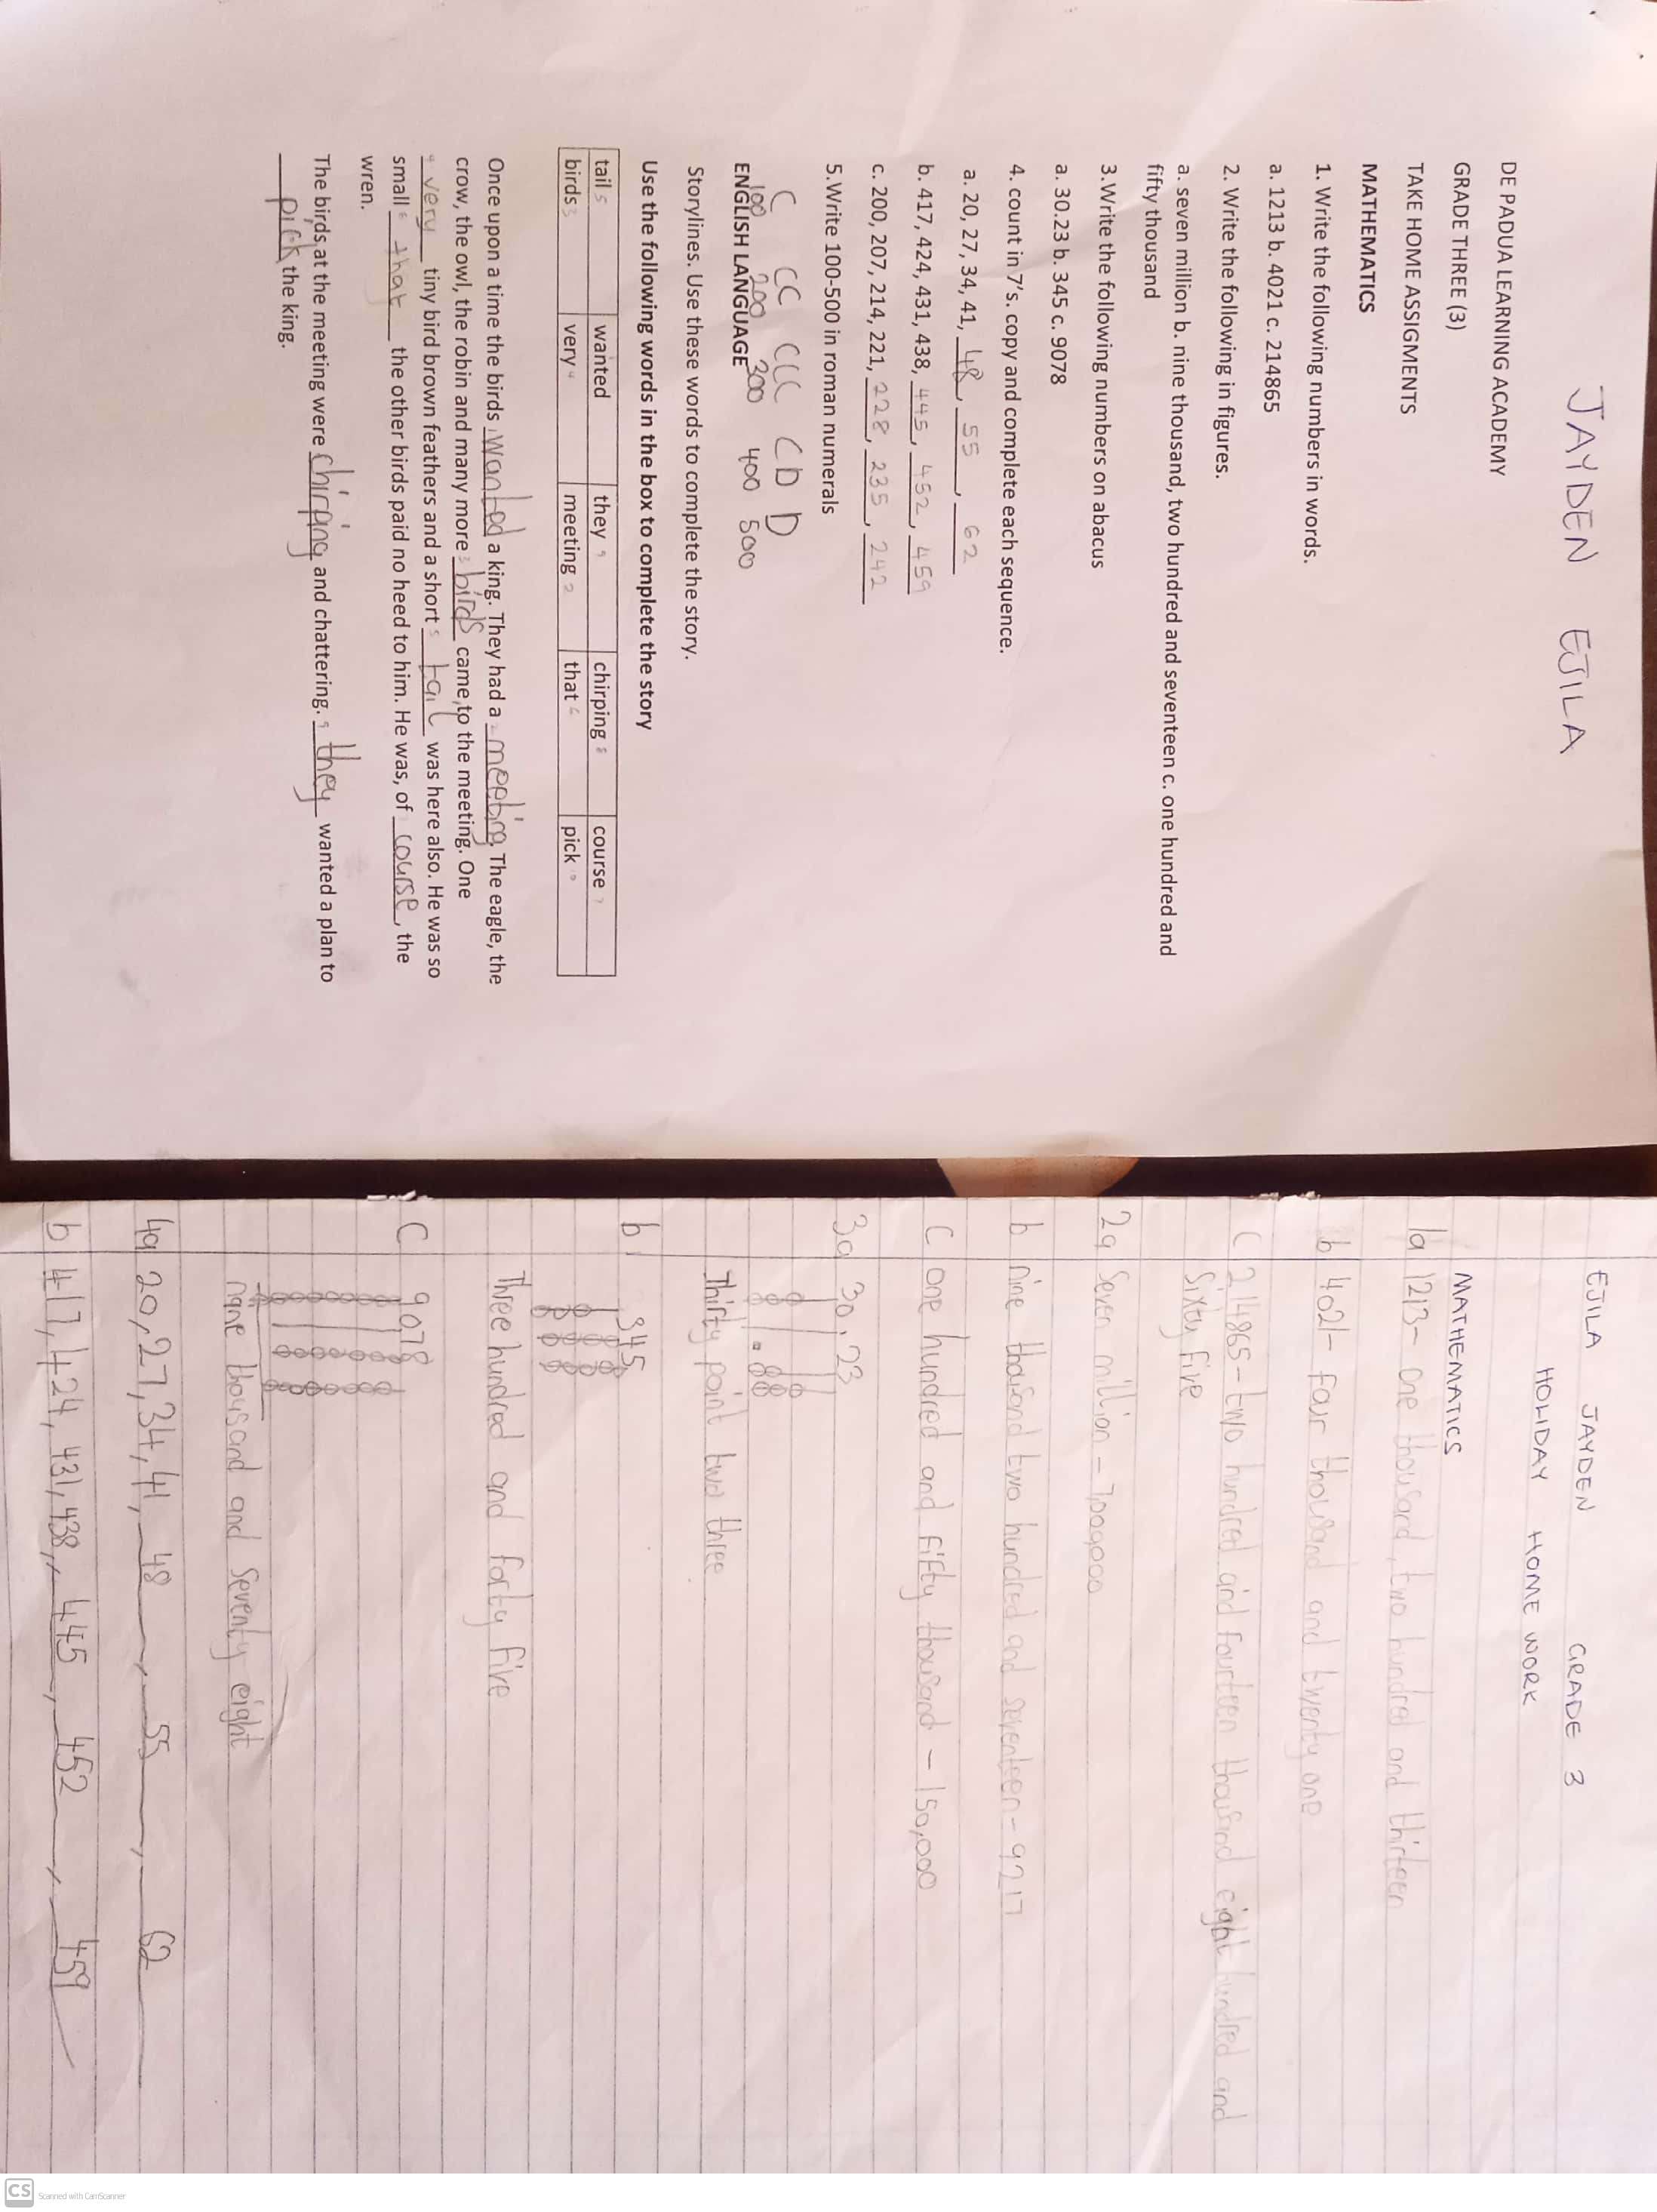 JAYDEN EJILA
DE PADUA LEARNING ACADEMY
GRADE THREE (3)
TAKE HOME ASSIGMENTS
MATHEMATICS
1. Write the following numbers in words.
a. 1213 b. 4021 c. 214865
2. Write the following in figures.
a. seven million b. nine thousand, two hundred and seventeen c. one hundred and
fifty thousand
3.Write the following numbers on abacus
a. 30.23 b. 345 c. 9078
4. count in 7's. copy and complete each sequence.
a. 20, 27, 34, 41, 48, 55, 62
b. 417, 424, 431, 438, 445, 452, 459
c. 200, 207, 214, 221, 228, 235, 242
5.Write 100-500 in roman numerals
C CC CCC CD D
100 200 300 400 500
ENGLISH LANGUAGE
Storylines. Use these words to complete the story.
Use the following words in the box to complete the story
tail 5 wanted they 9 chirping 8 course 7
birds 3 very 4 meeting 2 that 6 pick 10
Once upon a time the birds wanted a king. They had a meeting. The eagle, the
crow, the owl, the robin and many more birds came to the meeting. One
very tiny bird brown feathers and a short tail was here also. He was so
small that the other birds paid no heed to him. He was, of course, the
wren.
The birds at the meeting were chirping and chattering. they wanted a plan to
pick the king.
EJILA JAYDEN GRADE 3
HOLIDAY HOME WORK
MATHEMATICS
1a 1213- one thousand, two hundred and thirteen
b 4021- four thousand and twenty one
C 214865- two hundred and fourteen thousand eight hundred and
Sixty five
2a Seven million - 7,000,000
b nine thousand two hundred and seventeen - 9217
C one hundred and fifty thousand - 150,000
3a 30.23
Thirty point two three
b 345
Three hundred and forty five
C 9078
nine thousand and Seventy eight
4a 20, 27, 34, 41, 48, 55, 62
b 417, 424, 431, 438, 445, 452, 459
CS Scanned with CamScanner